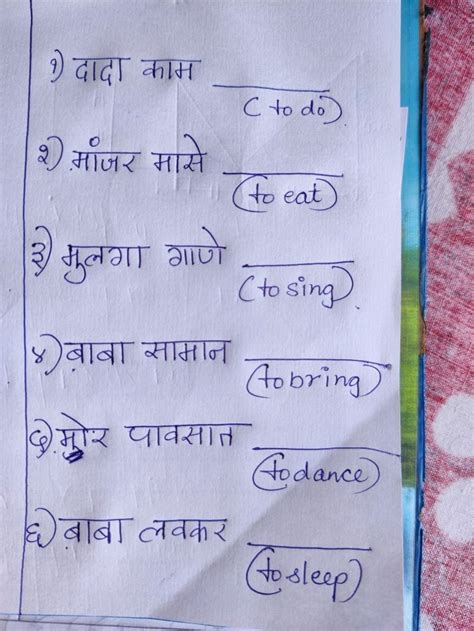 १) दादा काम ________
(to do)
२) मांजर मासे ________
(to eat)
३) मुलगा गाणे ________
(to sing)
४) बाबा सामान ________
(to bring)
५) मोर पावसात ________
(to dance)
६) बाबा लवकर ________
(to sleep)